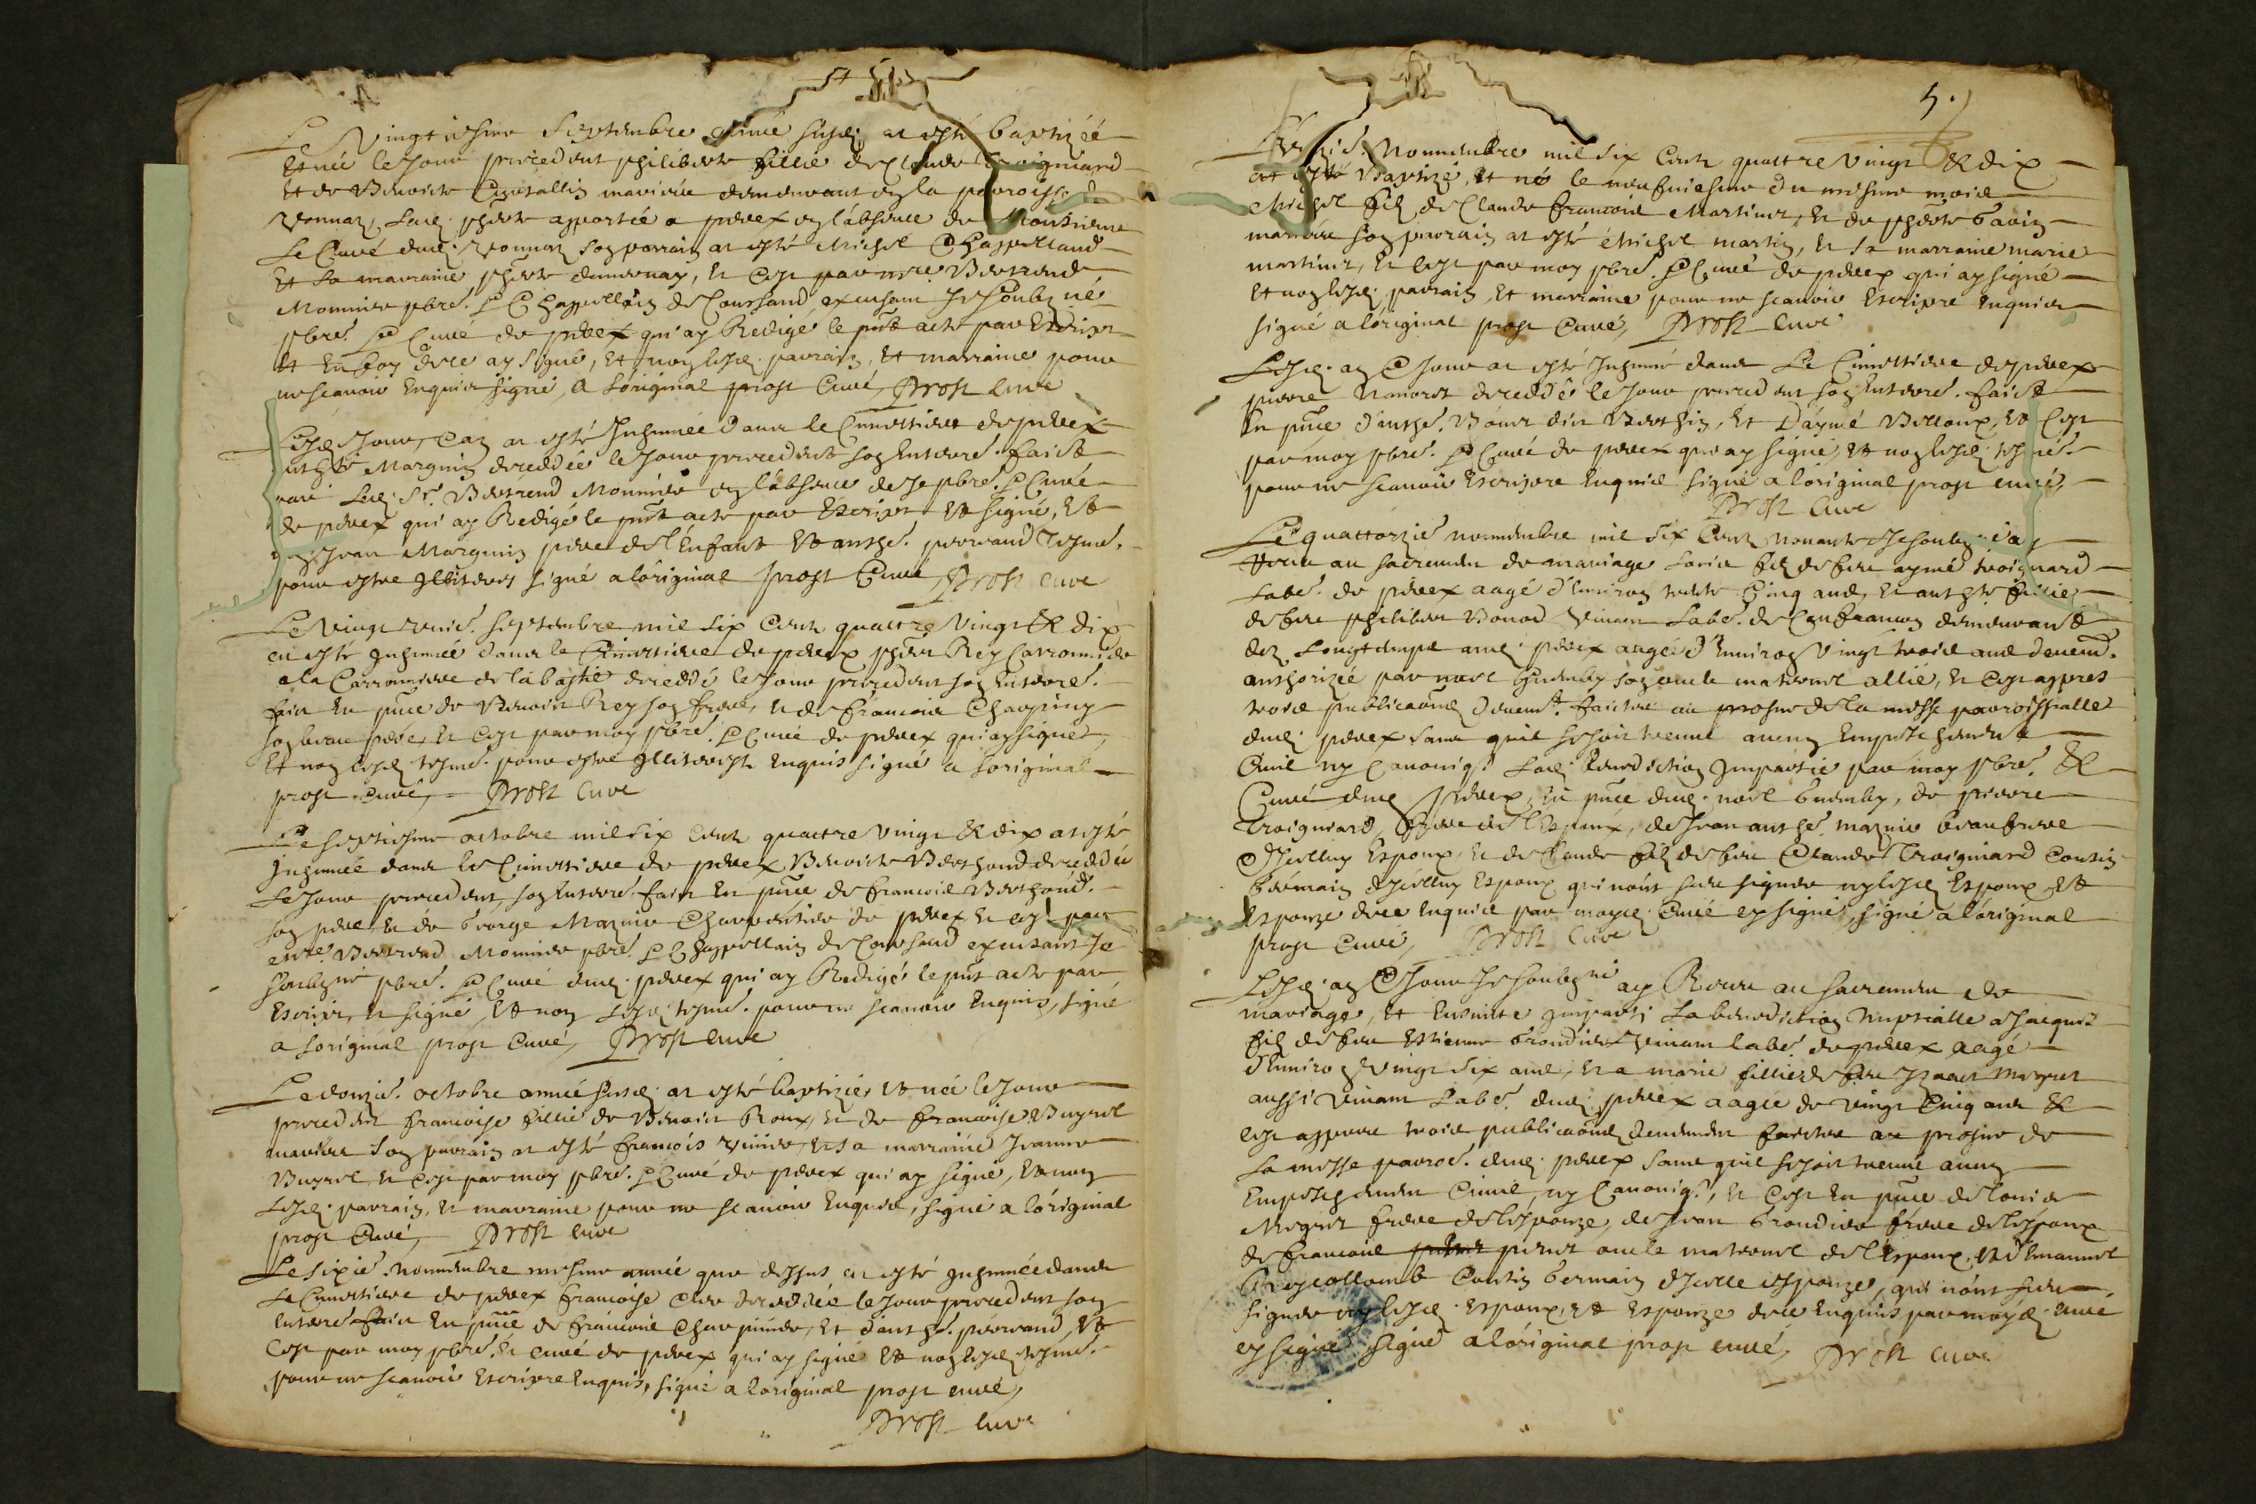 Le Vingtiesme Septembre année susd. at esté baptizéé
Et née le Jour precedent philiberte fillie de Claude Troigniard
Et de Benoiste Chevallin mariées demeurant en la parroisse de
Vonnaz, lad. phberte apportée a perex en l'absence de Monsieur
Le Curé dud. Vonnaz son parrain at esté Michel Chappelland
Et sa marraine phberte demornay, Et Cest par mre Bertrend
Monnier pbre. & Chappellain de Coursand excusant Je Soubzné
pbre. & Curé de perex qui ay Redigé le pnt acte par Escript
Et En foy dece ay Signé, Et non lesd. parrain, Et marraine pour
ne scauoir Enquis signé, a l'original prost Curé, Prost Cure
Lesd. Jour, et an at esté Inhumée dans le Cimettiere de perex
Margnin decedée le Jour precedent son Enterré. faict
par led. Sr. Bertrend Monnier en l'absence de Je pbre. & Curé
de perex qui ay Redigé le pnt acte par Escript Et signé, Et
non Jean Margnin pere de l'Enfant Et anthe. perraud Tesms.
pour estre Illiterés signé a l'original prost Curé, Prost cure
Le Vingt septembre mil six Cent quattre Vingt & dix
at esté Inhumé dans le Cimettiere de perex phibert Rey Carronnier
a la Carronniere de la bastie decedé le Jour precedent son Enterré.
fait En pnce de Benoist Rey son frere, et de francois Chapuis
son beau pere, et Cest par moy pbre. & Curé de perex qui ay signé,
Et non lesd. tesms. pour estre Illiterés Enquis signé a l'original
prost Curé, Prost Cure
Le septiesme octobre mil six Cent quattre Vingt & dix at esté
Inhumée dans le Cimettiere de perex Benoiste Berthoud decedée
Le Jour precedent, son Enterré fait En pnce de francois Berthoud.
son pere et de George Mazuir Charpentier de perex et Cest par
mre. Bertrend Monnier pbre. & Chappellain de Coursand excusant Je
Soubzné pbre. & Curé dud. perex qui ay Redigé le pnt acte par
Escript, et signé, Et non Lesd. tesms. pour ne scauoir Enquis, signé
a l'original prost Curé, Prost Cure
Le douzie. octobre année susd. at esté baptizée, Et née le Jour
precedent francoise fillie de Benoist Roux, et de francoise Buyret
mariées Son parrain at esté francois Vuiier, et sa marraine Jeanne
Buyret, et Cest par moy pbre. & Curé de perex qui ay signé, Et non
Lesd. parrain, et marraine pour ne scauoir Enquis, signé a l'original
prost Curé, Prost Cure
Le sixie. Nouembre mesme année que dessus at esté Inhumée dans
Le Cimettiere de perex francoise decedée le Jour precedent son
Enterré fait En pnce de francois Charpinier, Et d'anthe. perraud, Et
Cest par moy pbre. et Curé de perex qui ay signé Et non lesd. tesms.
pour ne scauoir Escripre Enquis, signé a l'original prost curé,
Prost Cure
5.
Nouembre mil six Cent quattre Vingt & dix
at esté Baptizé, Et né le neufuiesme du mesme mois
Michel filz de Claude francois Martinet, et de phberte Gauin
mariées Son parrain at esté Michel martin, Et sa marraine marie
martinet, Et Cest par moy pbre. & Curé de perex qui ay signé
Et non lesd. parrain, Et marraine pour ne scauoir Escripre Enquis
signé a l'original prost Curé, Prost Cure
Lesd. an & Jour at esté Inhumé dans Le Cimettiere de perex
pierre decedé le Jour precedent son Enterré. faict
En pnce d'anthe. Berthin, Et D'aymé Velloux, Et Cest
par moy pbre. & Curé de perex qui ay signé, Et non lesd. tesms.
pour ne scauoir Escripre Enquis signé a l'original prost curé,
Prost Cure
Le quattorzie nouembre mil six Cent Nonante Je soubzné ay
Receu au sacrement de mariage Louis filz de feu aymé troignard
Labr. de perex aagé d'Enuiron trente Cinq ans, Et anthte fillie
de feu philibert Bonod Viuant Labr. de Confrancon demeurant
dez Longtemps aud. perex aagée d'Enuiron Vingt trois ans deuemt.
authorizée par noel Guemby son oncle maternel allié, et Cest appres
trois publicaons Deuemt. faictes au prosne de la messe parroissialle
dud. perex sans quil se soit treuué aucun Empeschement
Ciuil ny Canoniq. Lad. benediction Impartie par moy pbre. &
Curé dud. perex, En pnce dud. noel Guemby, de pierre
Troigniard, frere de l'Espoux, de Jean anthe. mazuir beaufrere
d'Jcelluy Espoux, et de Claude filz de feu Claude Troigniard Cousin
Germain d'Jcelluy Espoux qui n'ont sceu signer ny lesd. Espoux Et
Espouze dece Enquis par moyd. Curé cy signé, signé a l'original
prost Curé, Prost Cure
Lesd. an & Jour Je Soubzné ay Receu au sacrement de
mariage, Et Ensuitte Imparti La benediction Nuptialle a Jacques
filz de feu Estienne Grandier Viuant labr. de perex aagé
d'Enuiron Vingt six ans, Et a marie fillie de feu Isaac Moyret
aussi Viuant Labr. dud. perex aagée de Vingt Cinq ans &
Cest appres trois publicaons deuement faictes au prosne de
La messe parroe. dud. perex sans quil se soit treuué aucun
Empeschement Ciuil, ny Canoniq., et Cest En pnce de Louis
Moyret frere de l'Espouze, de Jean Grandier frere de l'Espoux
de francois perret oncle maternel de l'Espoux, Et d'Emanuel
Cousin Germain d'Jcelle espouze, qui n'ont sceu
signer ny lesd. Espoux, Et Espouze dece Enquis par moyd. Curé
cy signé signé a l'original prost curé, Prost Cure